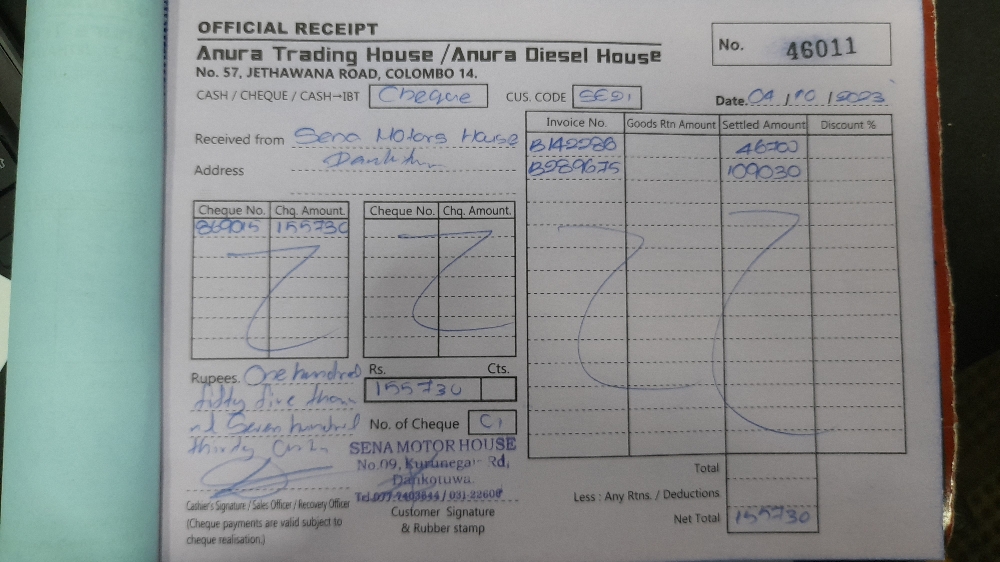 OFFICIAL RECEIPT
Anura Trading House / Anura Diesel House
No. 57, JETHAWANA ROAD, COLOMBO 14.
No. 46011
CASH / CHEQUE / CASH→IBT Cheque CUS. CODE SE91 Date. 04 / 10 / 2023
Received from Sena Motors House
Address
Invoice No. Goods Rtn Amount Settled Amount Discount %
B142286 46700
B989675 109030
Cheque No. Chq. Amount. Cheque No. Chq. Amount.
869015 155730
Rupees. One hundred
fifty five thou
nd Seven hundred
thirty
Rs. Cts.
155730
No. of Cheque
SENA MOTOR HOUSE
No.09, Kurunegal Rd,
Dankotuwa.
Cashier's Signature / Sales Officer / Recovery Officer
(Cheque payments are valid subject to
cheque realisation.)
Customer Signature
& Rubber stamp
Total
Less : Any Rtns. / Deductions
Net Total 155730